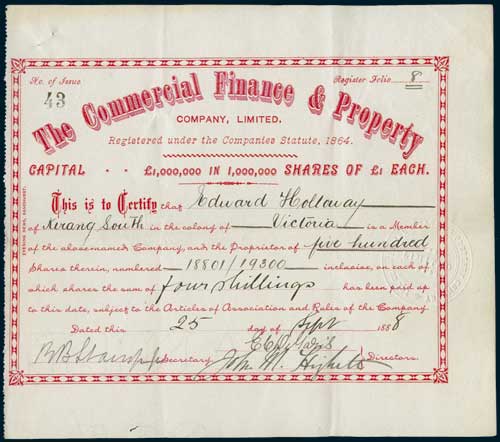 No. of Issue
43
Register Folio 8
The Commercial Finance & Property
COMPANY, LIMITED.
Registered under the Companies Statute, 1864.
CAPITAL · · £1,000,000 IN 1,000,000 SHARES OF £1 EACH.
This is to Certify that Edward Holloway
of Kerang South in the colony of Victoria is a Member
of the abovenamed Company, and the Proprietor of five hundred
Shares therein, numbered 18801/19300 inclusive, on each of
which shares the sum of four shillings has been paid up
to this date, subject to the Articles of Association and Rules of the Company
Dated this 25 day of Sept 1888
Secretary
John M. Highett
Directors.